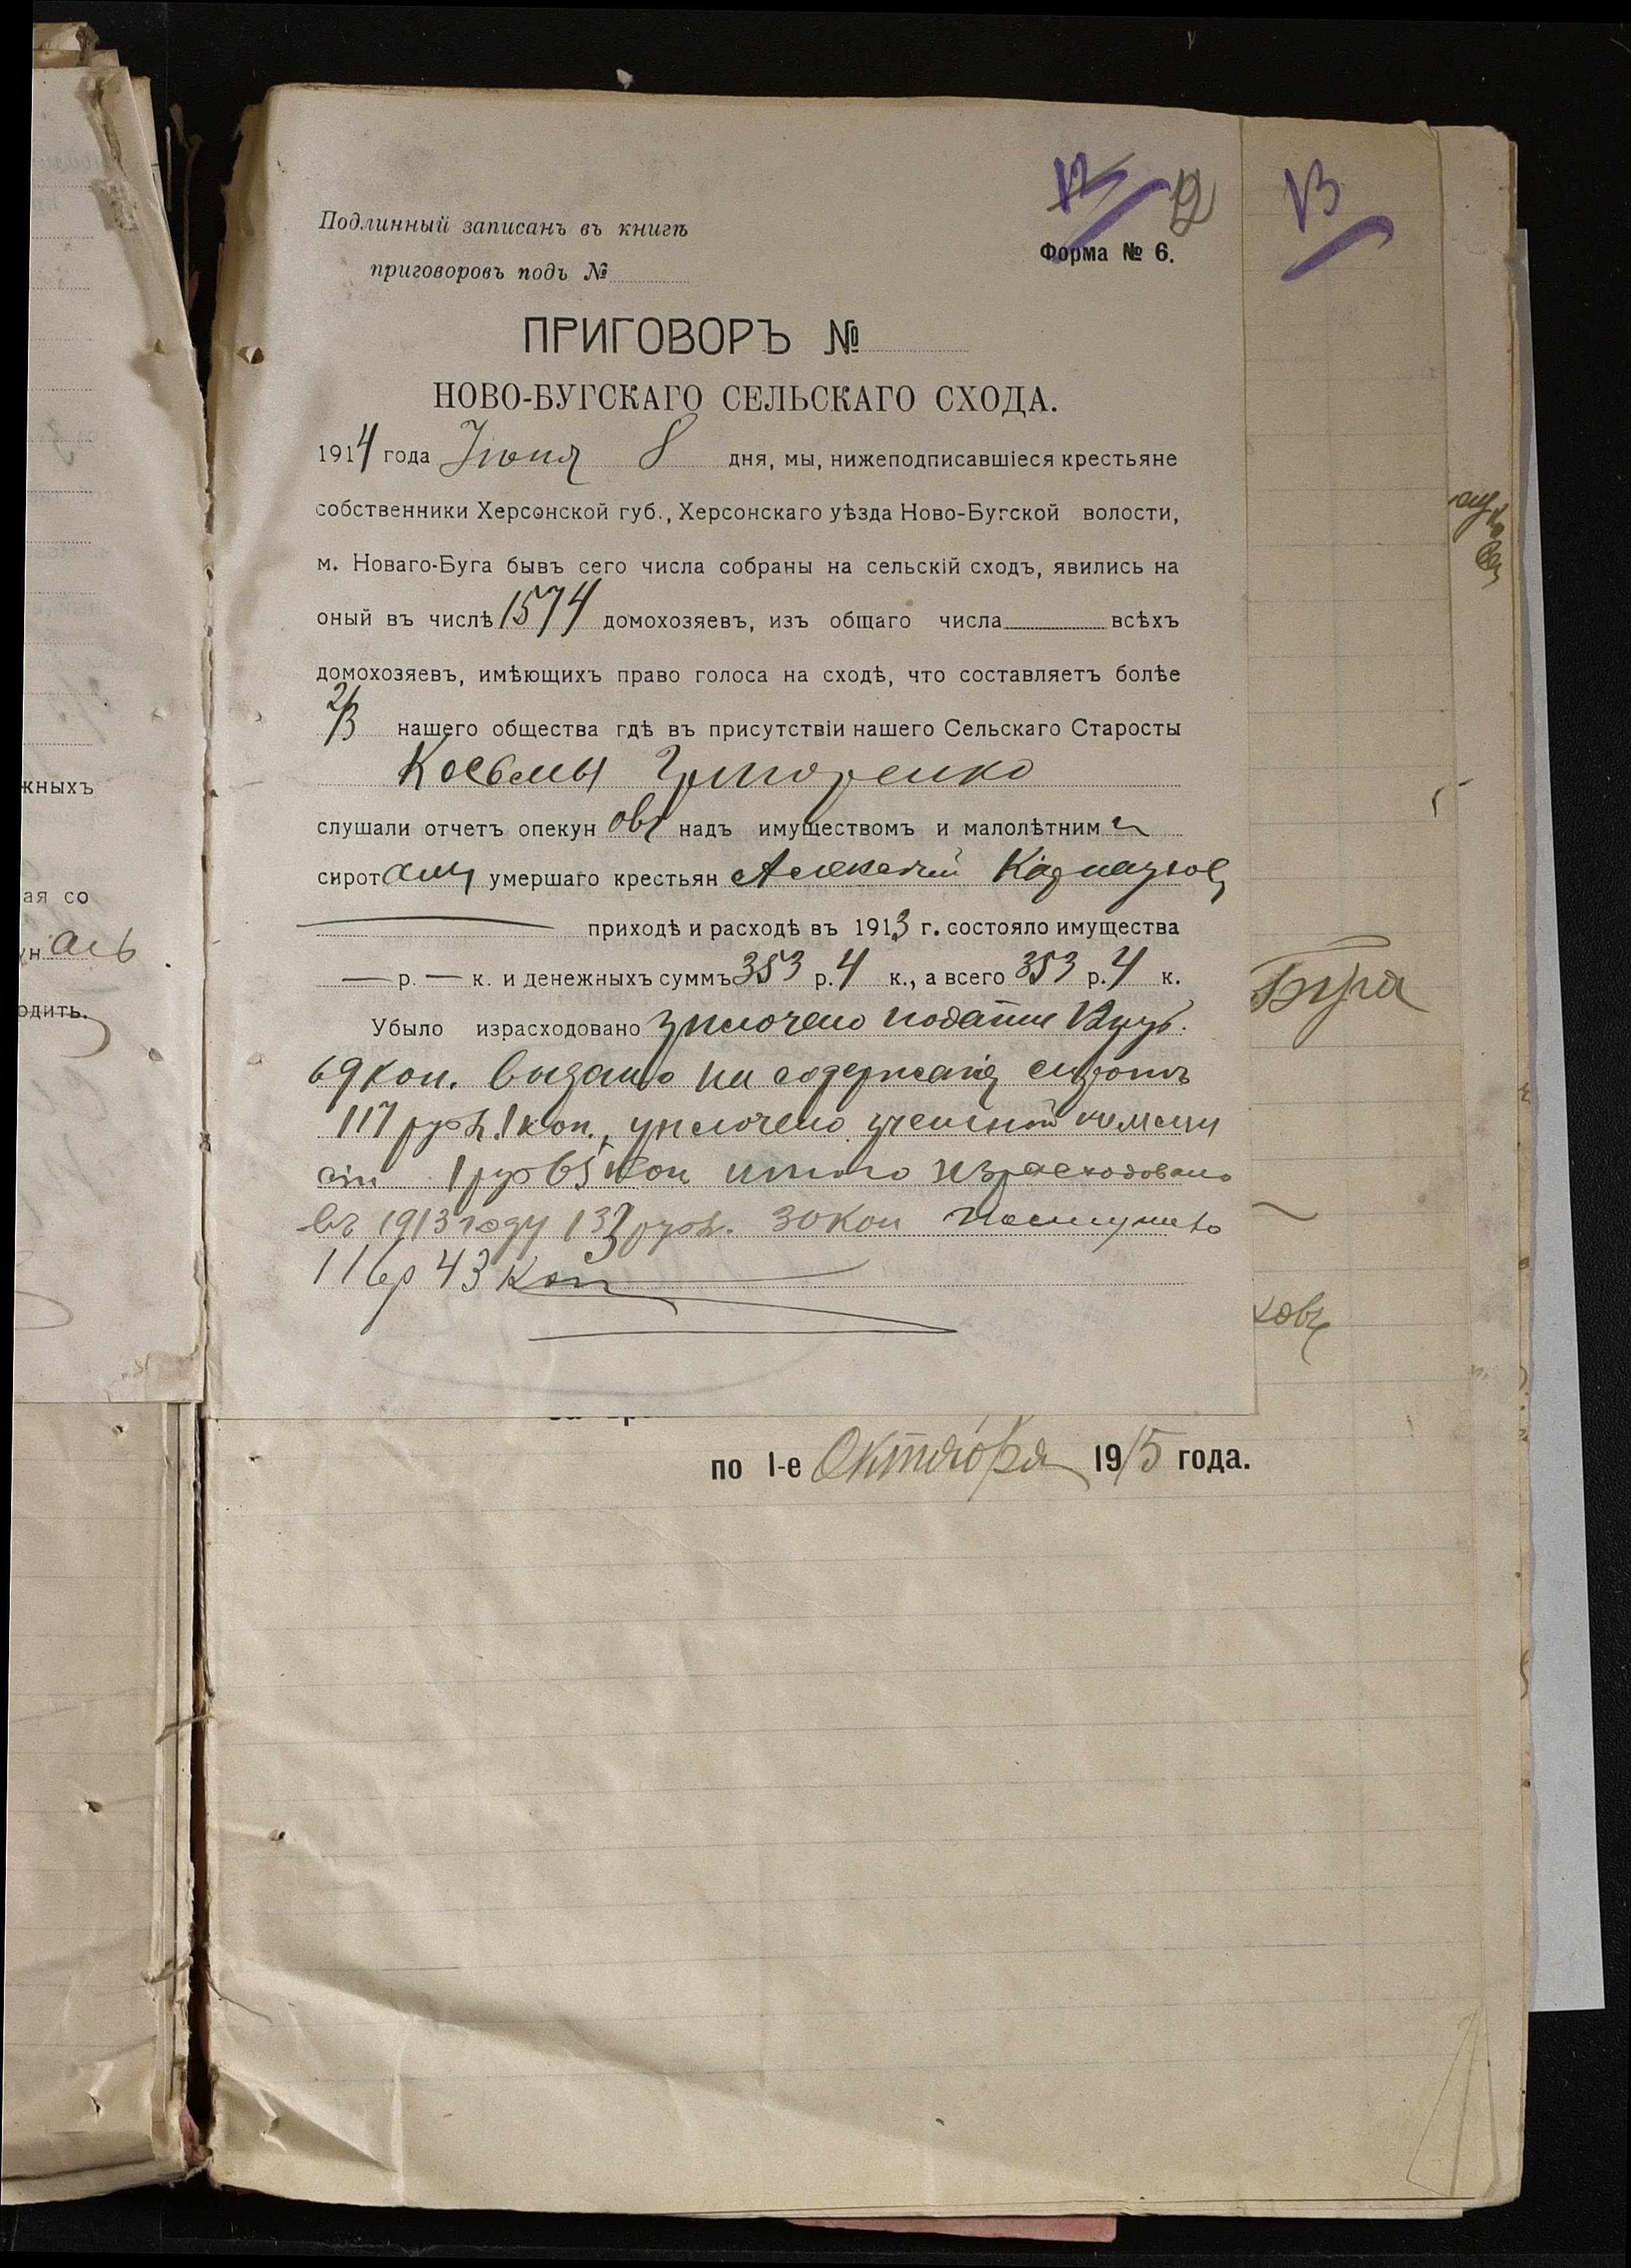 13 12
Подлинный записанъ въ книгѣ
приговоровъ подъ №
Форма № 6.
ПРИГОВОРЪ №
НОВО-БУГСКАГО СЕЛЬСКАГО СХОДА.
1914 года Іюня 8 дня, мы, нижеподписавшіеся крестьяне
собственники Херсонской губ., Херсонскаго уѣзда Ново-Бугской волости,
м. Новаго-Буга бывъ сего числа собраны на сельскій сходъ, явились на
оный въ числѣ 1574 домохозяевъ, изъ общаго числа всѣхъ
домохозяевъ, имѣющихъ право голоса на сходѣ, что составляетъ болѣе
2/3 нашего общества гдѣ въ присутствіи нашего Сельскаго Старосты
Косьмы Григоренко
слушали отчетъ опекуновъ надъ имуществомъ и малолѣтними
сиротами умершаго крестьян Алексѣй
приходѣ и расходѣ въ 1913 г. состояло имущества
— р. — к. и денежныхъ суммъ 353 р. 4 к., а всего 353 р. 4 к.
Убыло израсходовано уплочено подати руб.
69 коп. выдано на содержанія сиротъ
117 руб. 1 коп., уплочено
1 руб 65 коп итого израсходовано
въ 1913 году 137 руб. 30 коп поступило
116 р 43 коп
по 1-е Октября 1915 года.
13
Буга
ковъ
жныхъ
ая со
уналь
одить.